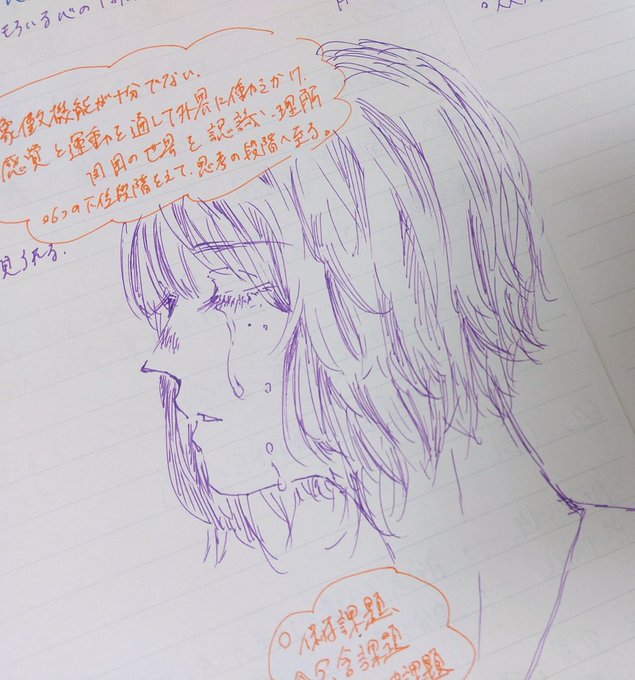 象徴機能が十分でない.
感覚と運動を通して外界に働きかけ,
周囲の世界を認識、理解
6つの下位段階を 思考の段階へ至る。
見られる.
○ 保存課題
包含課題
課題